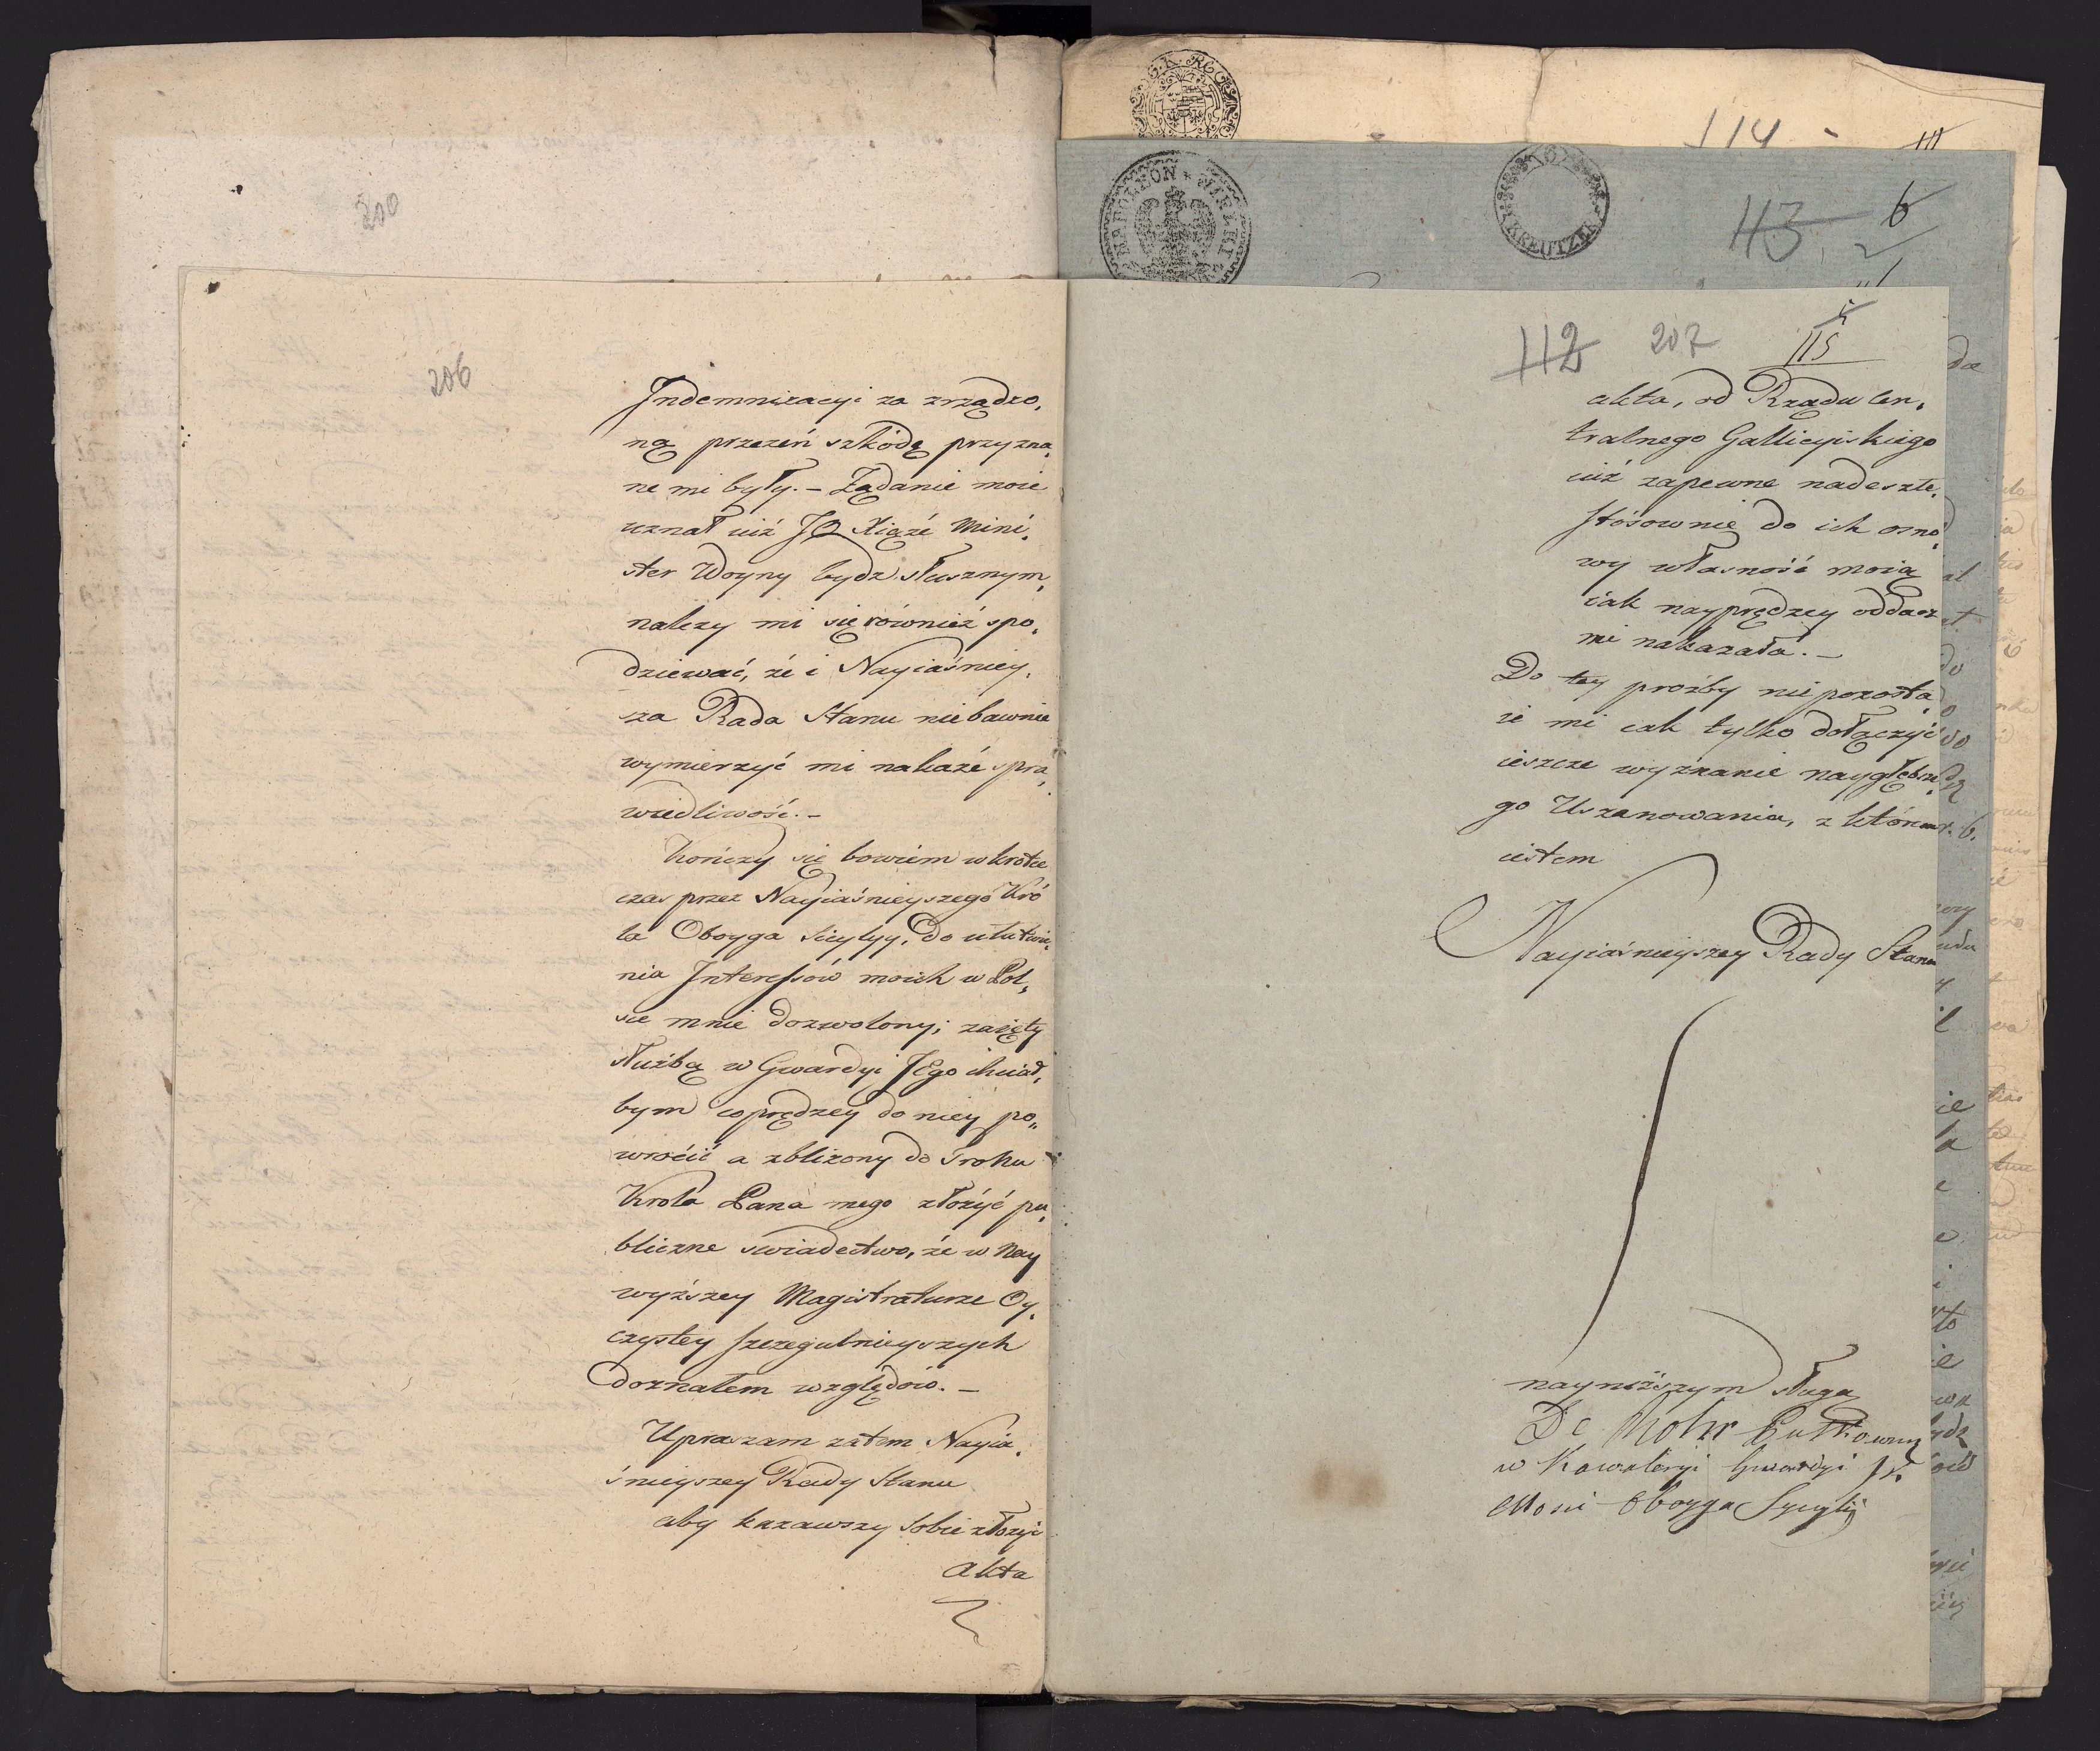 200
206
Indemnizacyi za zrządzo,
ną przezeń szkodę przyzna,
ne mi były. – Żądanie moie
uznał iuż JO Xiążę Mini,
ster Woyny bydź słusznym,
należy mi się równieź spo,
dziewać, że i Nayiaśniey,
sza Rada Stanu niebawnie
wymierzyć mi nakaże spra,
wiedliwość. –
Kończy się bowiem wkrotce
czas przez Nayiaśnieyszego Kró
la Oboyga Sicylyy, do ułatwie,
nia Interessów moich w Pol,
sce mnie dozwolony; zaięty
służbą w Gwardyi JEgo chciał,
bym co prędzey do niey po„
wrócić a zbliżony do Tronu
Krola Pana mego złożyć pu,
bliczne swiadectwo, że w Nay
wyższey Magistraturze Oy,
czystey szczegulnieyszych
doznałem względów. –
Upraszam zatem Nayia,
śnieyszey Rady Stanu
aby kazawszy sobie złożyć
Akta
114
NAPOLEON
KREUTZER
113
6
112
207
115
akta, od Rządu Cen,
tralnego Gallicyiskiego
iuż zapewne nadeszłe,
stósownie do ich osno,
wy własność moią
iak nayprędzey oddać
mi nakazała. –
Do tey proźby nie pozosta,
ie mi iak tylko dołączyć
ieszcze wyznanie naygłębsze,
go Uszanowania, z którem
iestem
Nayiaśnieyszey Rady Stanu
nayniższym sługą
De Mohr Pułkowny
w Kawaleryi Gwardyi JK
Mosci Oboyga Sycylij